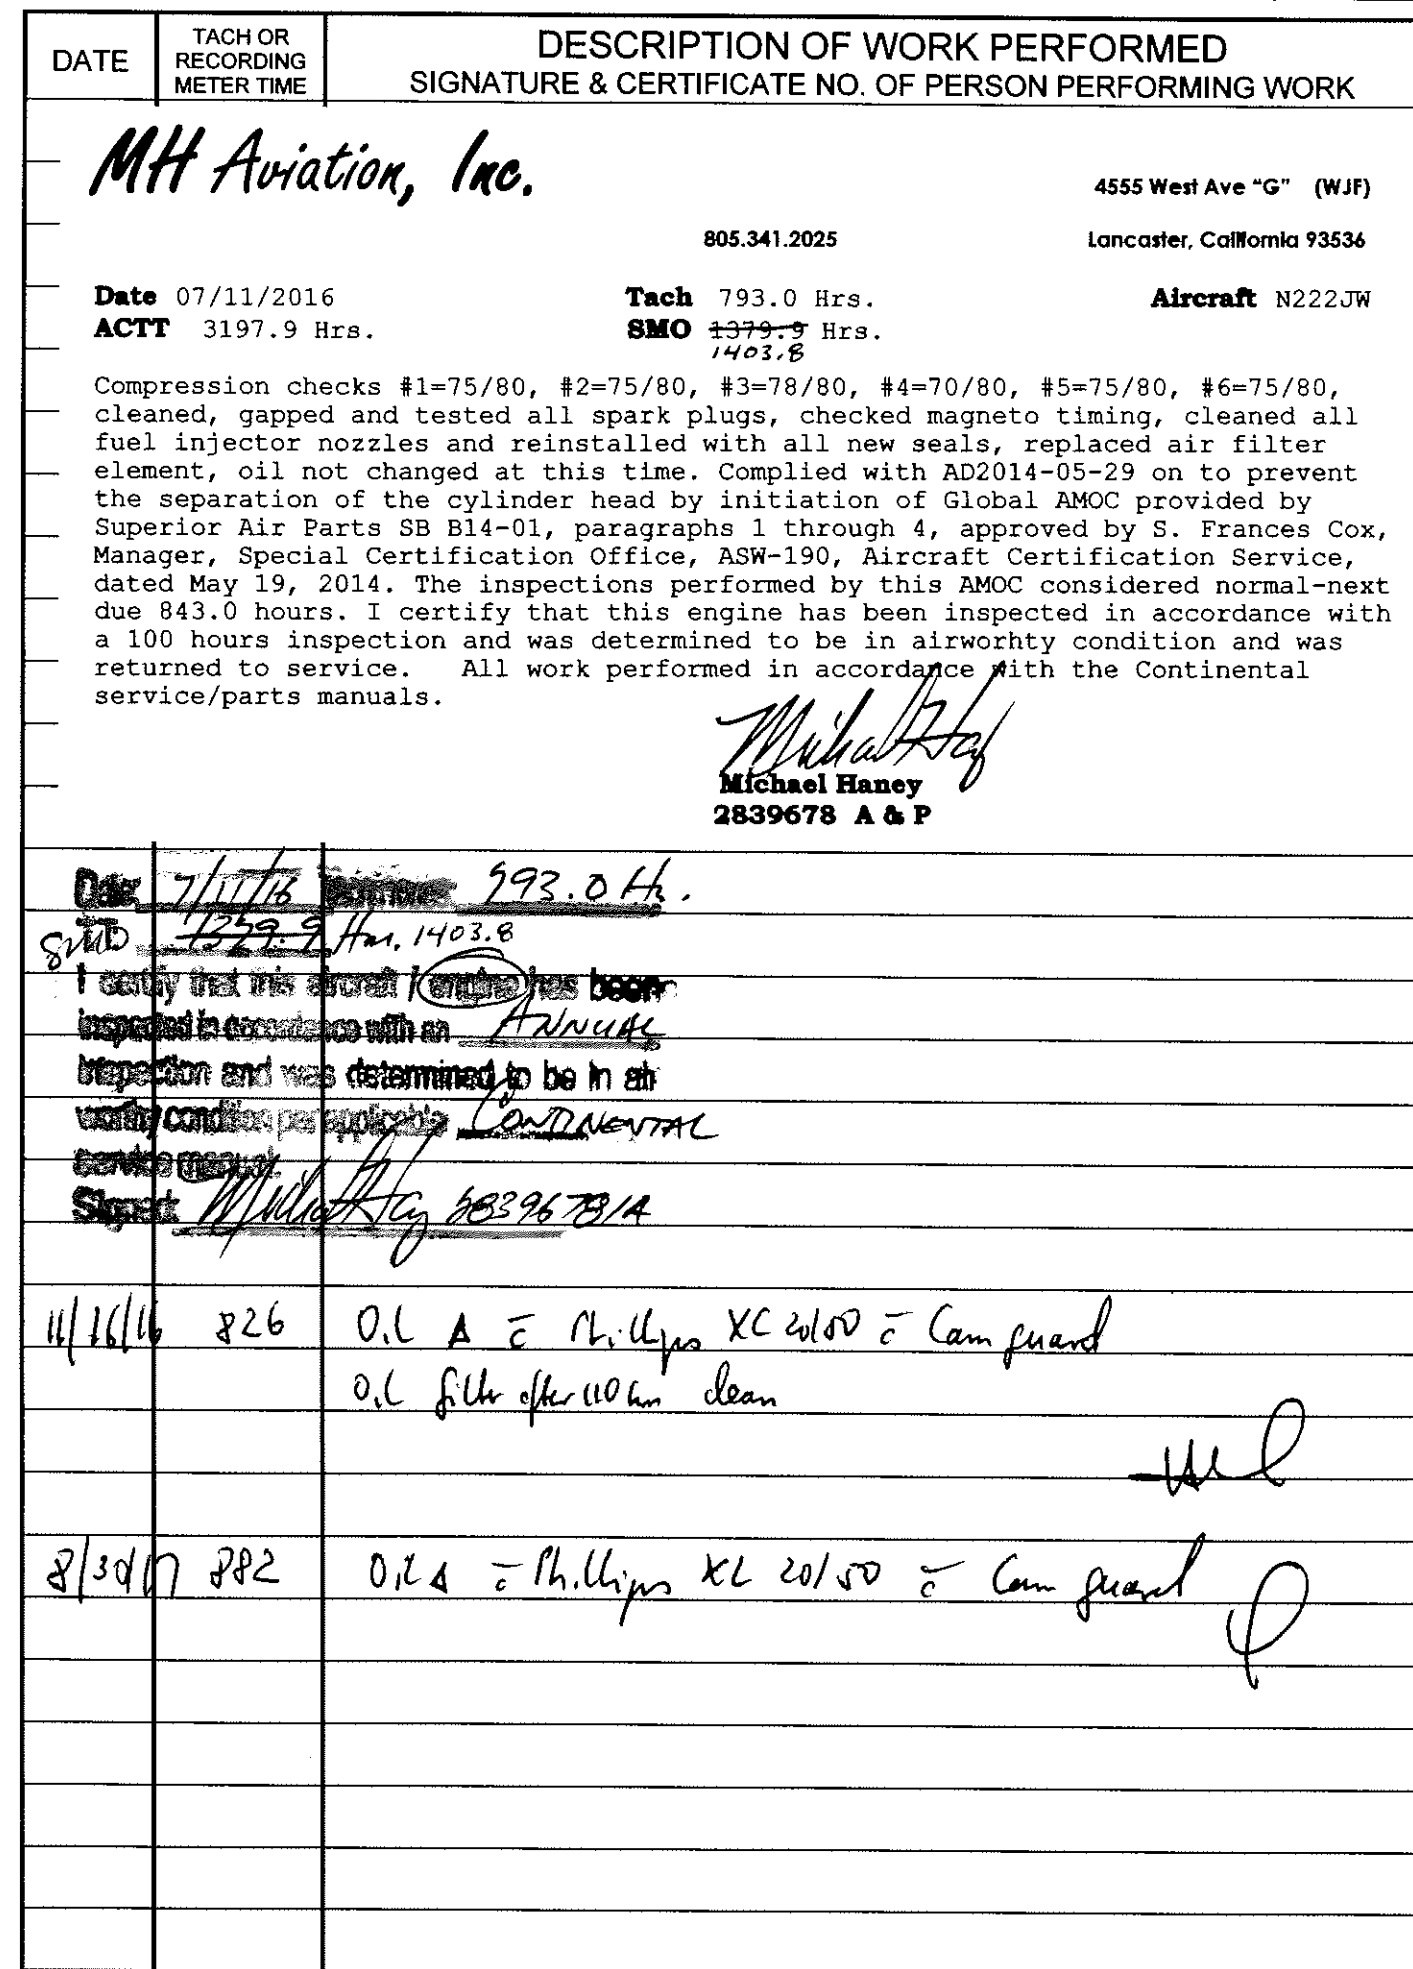 DATE
TACH OR
RECORDING
METER TIME
DESCRIPTION OF WORK PERFORMED
SIGNATURE & CERTIFICATE NO. OF PERSON PERFORMING WORK
MH Aviation, Inc.
4555 West Ave "G" (WJF)
805.341.2025 Lancaster, California 93536
Date 07/11/2016 Tach 793.0 Hrs. Aircraft N222JW
ACTT 3197.9 Hrs. SMO 1379.9 Hrs.
1403.8
Compression checks #1=75/80, #2=75/80, #3=78/80, #4=70/80, #5=75/80, #6=75/80,
cleaned, gapped and tested all spark plugs, checked magneto timing, cleaned all
fuel injector nozzles and reinstalled with all new seals, replaced air filter
element, oil not changed at this time. Complied with AD2014-05-29 on to prevent
the separation of the cylinder head by initiation of Global AMOC provided by
Superior Air Parts SB B14-01, paragraphs 1 through 4, approved by S. Frances Cox,
Manager, Special Certification Office, ASW-190, Aircraft Certification Service,
dated May 19, 2014. The inspections performed by this AMOC considered normal-next
due 843.0 hours. I certify that this engine has been inspected in accordance with
a 100 hours inspection and was determined to be in airworhty condition and was
returned to service. All work performed in accordance with the Continental
service/parts manuals.
Michael Haney
2839678 A & P
Date 7/11/16 793.0 Hr.
SMO 1379.9 Hrs. 1403.8
I certify that this aircraft / engine has been
inspected in accordance with an ANNUAL
inspection and was determined to be in air
worthy condition per applicable CONTINENTAL
service manual.
Signed 2839678IA
11/16/16 826 Oil Δ c̄ Phillips XC 20/50 c̄ Cam guard
Oil filter after 110 hrs clean
8/30/17 882 Oil Δ c̄ Phillips XC 20/50 c̄ Cam guard